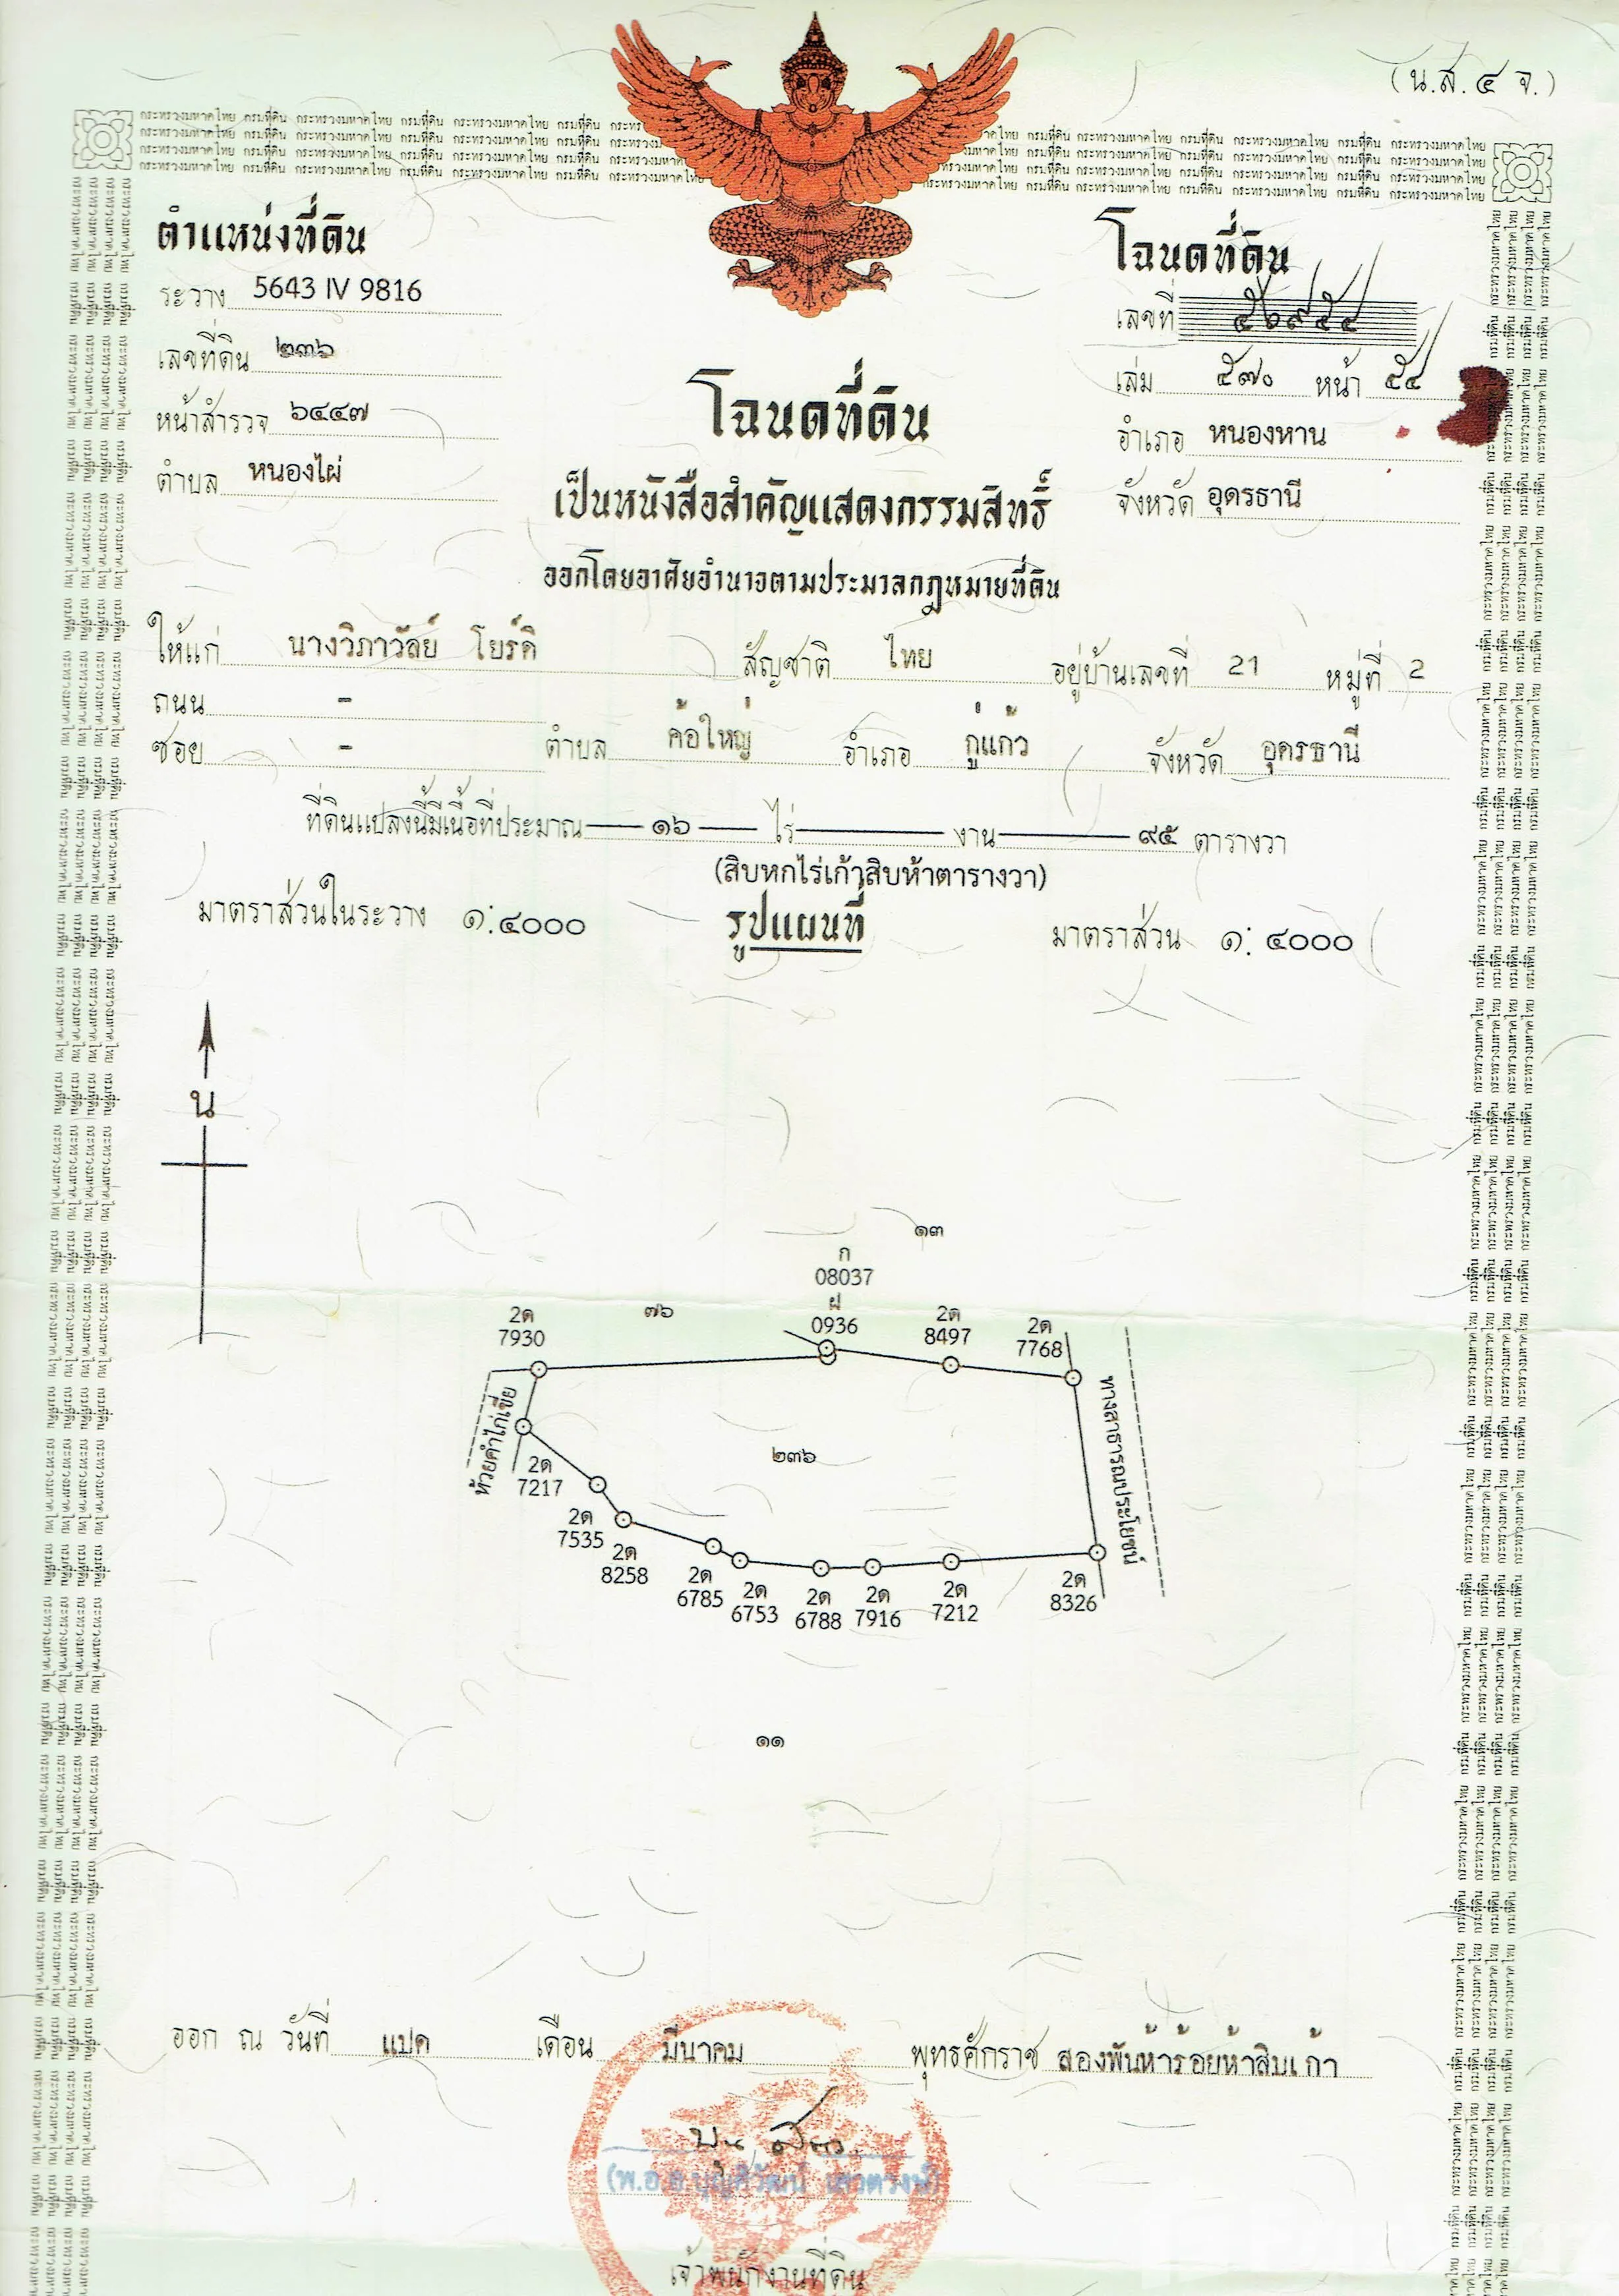 (น.ส.๔ จ.)
กระทรวงมหาดไทย กรมที่ดิน กระทรวงมหาดไทย กรมที่ดิน กระทรวงมหาดไทย กรมที่ดิน
ตำแหน่งที่ดิน
ระวาง 5643 IV 9816
เลขที่ดิน ๒๓๖
หน้าสำรวจ ๖๔๔๗
ตำบล หนองไผ่
โฉนดที่ดิน
เลขที่ ๕๖๙๕๔
เล่ม ๕๗๐ หน้า ๕๔
อำเภอ หนองหาน
จังหวัด อุดรธานี
โฉนดที่ดิน
เป็นหนังสือสำคัญแสดงกรรมสิทธิ์
ออกโดยอาศัยอำนาจตามประมวลกฎหมายที่ดิน
ให้แก่ นางวิภาวัลย์ โยร์ดิ สัญชาติ ไทย อยู่บ้านเลขที่ 21 หมู่ที่ 2
ถนน -
ซอย - ตำบล ค้อใหญ่ อำเภอ กู่แก้ว จังหวัด อุดรธานี
ที่ดินแปลงนี้มีเนื้อที่ประมาณ ๑๖ ไร่ งาน ๙๕ ตารางวา
(สิบหกไร่เก้าสิบห้าตารางวา)
มาตราส่วนในระวาง ๑:๔๐๐๐ รูปแผนที่ มาตราส่วน ๑:๔๐๐๐
น
๑๓
ก
08037
ฝ
0936
๗๖
2ด
7930
2ด
8497
2ด
7768
ห้วยคำไก่เขี่ย
ทางสาธารณประโยชน์
๒๓๖
2ด
7217
2ด
7535
2ด
8258
2ด
6785
2ด
6753
2ด
6788
2ด
7916
2ด
7212
2ด
8326
๑๑
ออก ณ วันที่ แปด เดือน มีนาคม พุทธศักราช สองพันห้าร้อยห้าสิบเก้า
เจ้าพนักงานที่ดิน